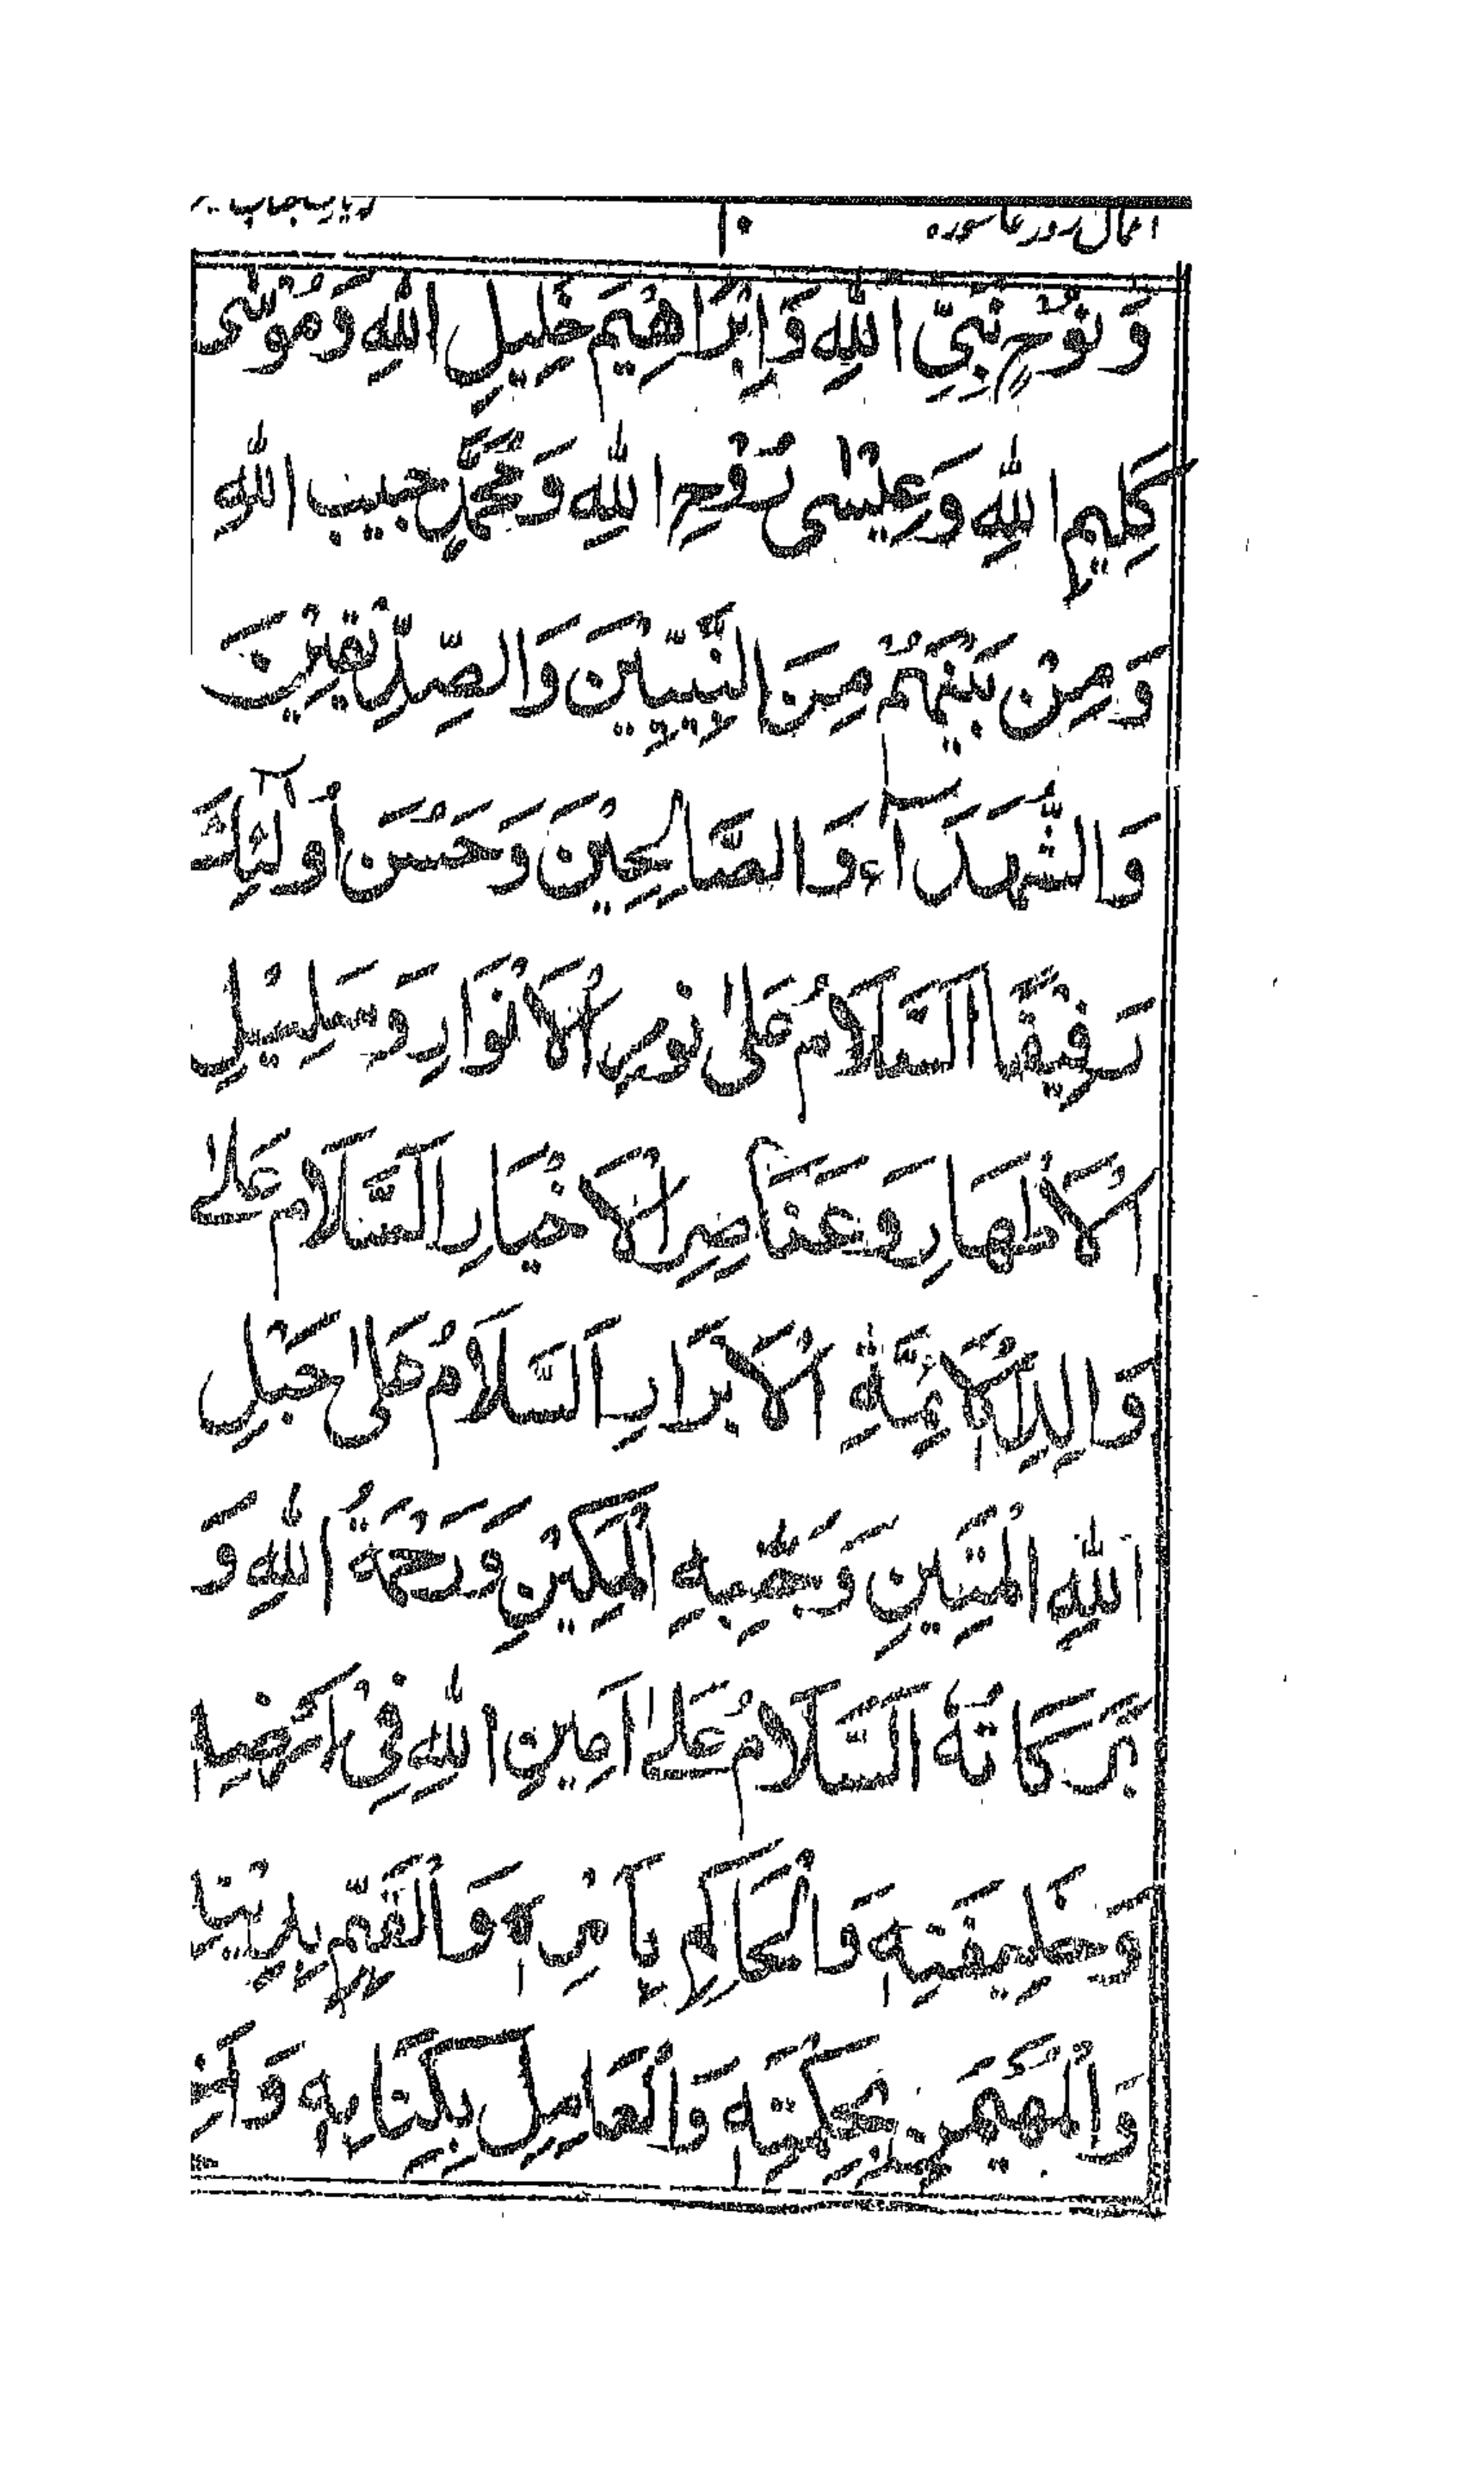 اعمال روز عاشورہ ۱۰ زیارت جناب
وَ نُوْحٍ نَبِيِّ اللهِ وَ اِبْرَاهِيْمَ خَلِيْلِ اللهِ وَ مُوْسٰى
كَلِيْمِ اللهِ وَ عِيْسٰى رُوْحِ اللهِ وَ مُحَمَّدٍ حَبِيْبِ اللهِ
وَ مِنْ بَيْنِهِمْ مِنَ النَّبِيِّيْنَ وَ الصِّدِّيْقِيْنَ
وَ الشُّهَدَآءِ وَ الصَّالِحِيْنَ وَ حَسُنَ اُولٰٓئِكَ
رَفِيْقًا اَلسَّلَامُ عَلىٰ نُوْرِ الْاَنْوَارِ وَ سَلِيْلِ
الْاَطْهَارِ وَ عَنَاصِرِ الْاَخْيَارِ اَلسَّلَامُ عَلےٰ
وَالِدِ الْاَئِمَّةِ الْاَبْرَارِ اَلسَّلَامُ عَلىٰ حَبْلِ
اللهِ الْمَتِيْنِ وَ جَنْبِهِ الْمَكِيْنِ وَ رَحْمَةُ اللهِ وَ
بَرَكَاتُهُ اَلسَّلَامُ عَلےٰ اَمِيْنِ اللهِ فِيْ اَرْضِهٖ
وَ خَلِيْفَتِهٖ وَ الْحَاكِمِ بِاَمْرِهٖ وَ الْقَيِّمِ بِدِيْنِهٖ
وَ الْمُهَيْمِنِ بِحِكْمَتِهٖ وَ الْعَامِلِ بِكِتَابِهٖ وَ اَخِ